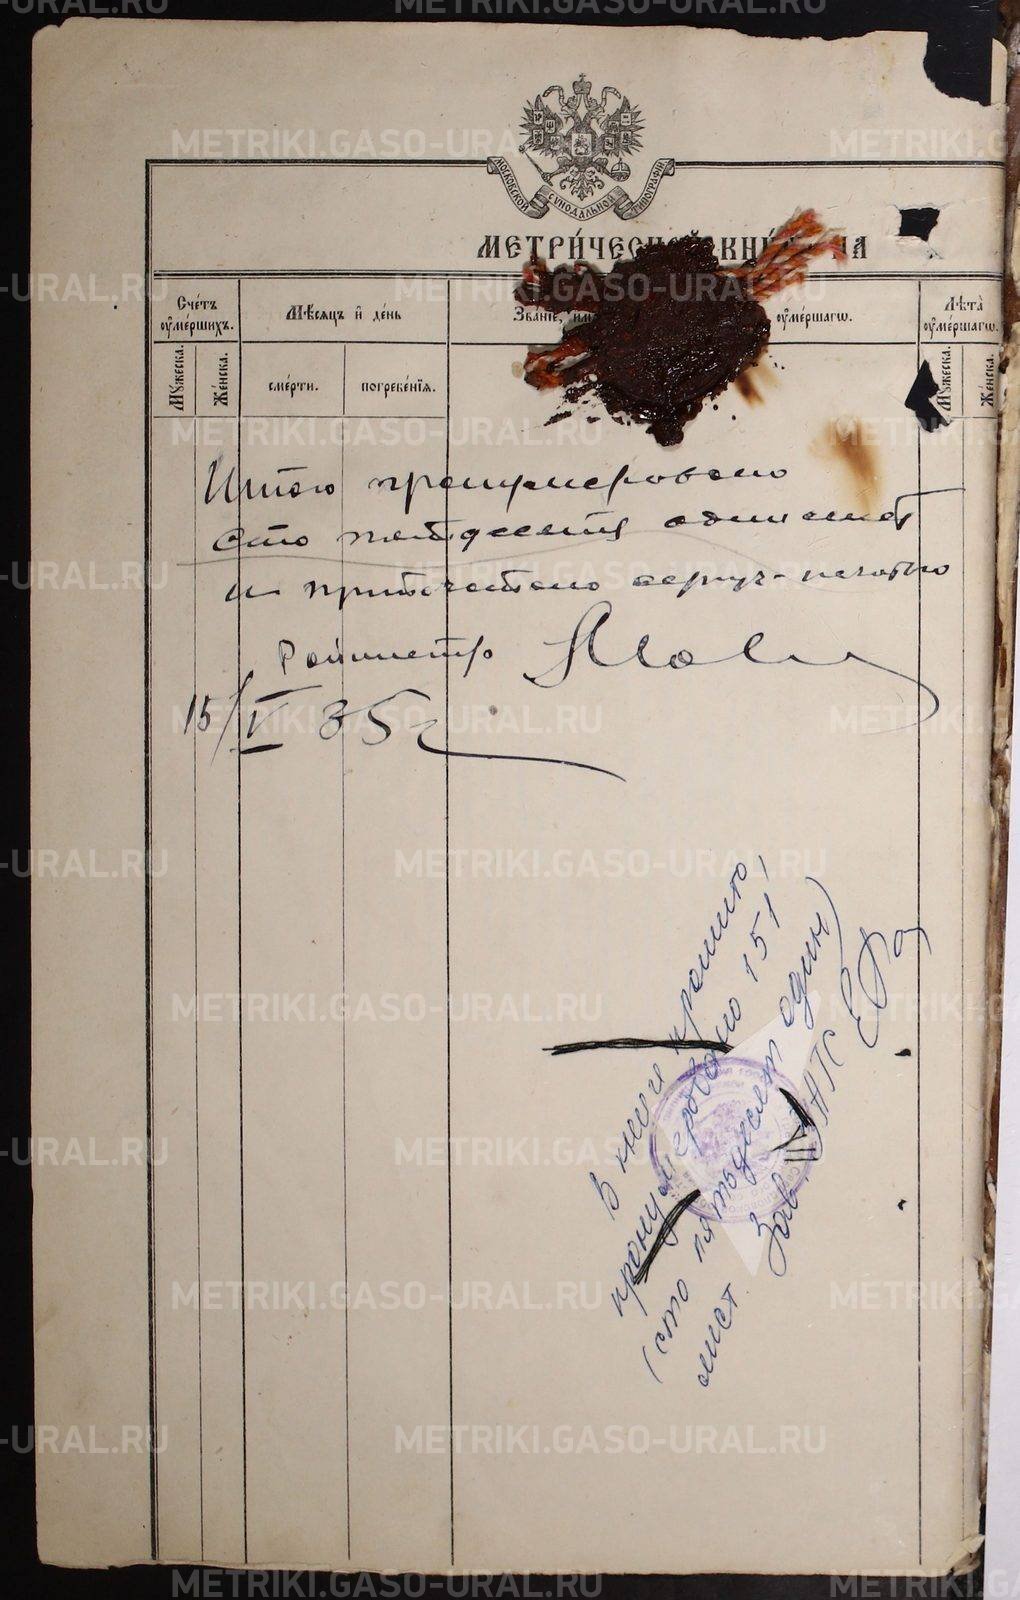 МОСКОВСКОЙ СѴНОДАЛЬНОЙ ТИПОГРАФІИ
МЕТРИ́ЧЕСКОЙ КНИ́ГИ НА
Сче́тъ ᲂу҆ме́ршихъ.
Мѣ́сѧцъ и҆ де́нь
Зва́нїе, и҆мѧ
ᲂу҆ме́ршагѡ.
Лѣ́та ᲂу҆ме́ршагѡ.
Мꙋ́жеска.
Же́нска.
сме́рти.
погребе́нїѧ.
Мꙋ́жеска.
Же́нска.
Итого пронумеровано
сто пятьдесят один лист
и припечатано сургуч-печатью
15/V 35 г
В книге прошито,
пронумеровано 151
(сто пятьдесят один)
лист.
Зав
METRIKI.GASO-URAL.RU